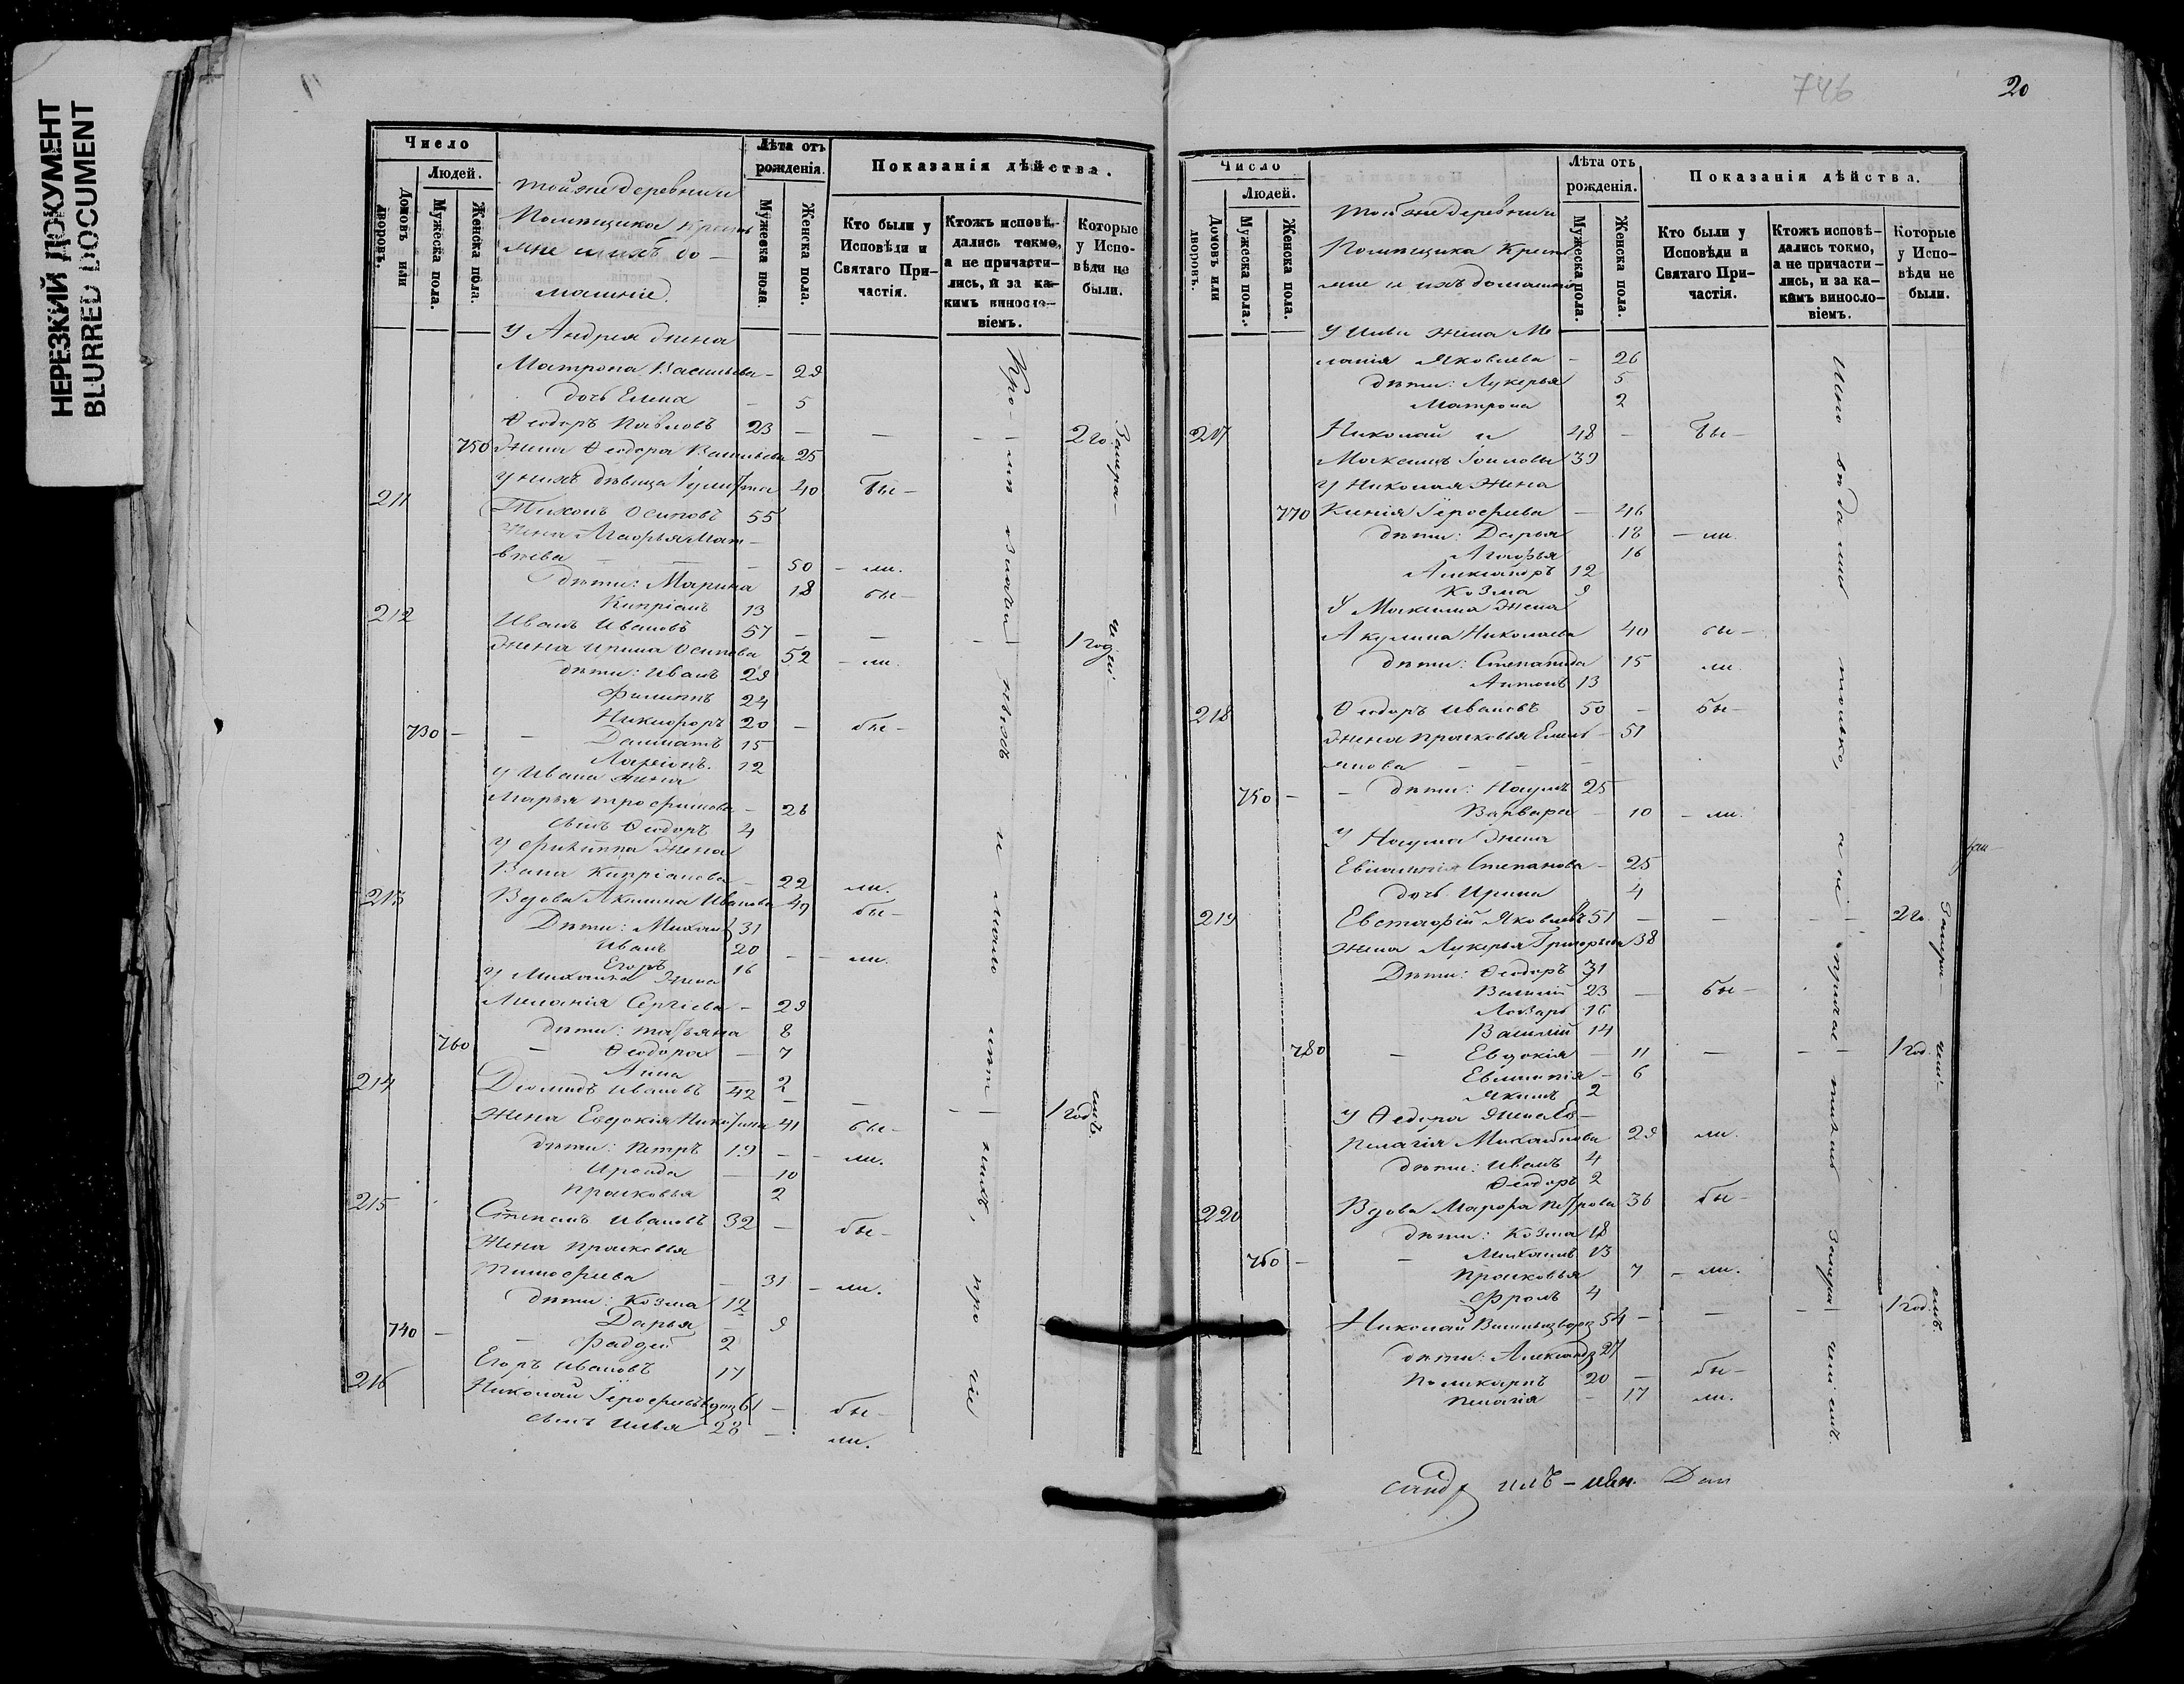 НЕРЕЗКИЙ ДОКУМЕНТ
BLURRED DOCUMENT
Число
Людей.
Домовъ или дворовъ.
Мужеска пола.
Женска пола.
тойже деревни
Помѣщика Кресть
яне и ихъ до-
машніе.
Лѣта отъ рожденія.
Мужеска пола.
Женска пола.
Показанія дѣйства.
Кто были у Исповѣди и Святаго При-частія.
Ктожъ исповѣ-дались токмо, а не причасти-лись, и за ка-кимъ виносло-віемъ.
Которые у Испо-вѣди не были.
У Андрея Жена
Матрона Васильева - 29
дочь Елена - 5
Ѳеодоръ Павловъ 23 - - - 2 го
750 Жена Ѳеодора Васильева 25
у нихъ дѣвица Іулитта 40 бы-
211 Тихонъ Осиповъ 55
Жена Агафья Мат-
вѣева - 50 - ли.
дѣти: Марина 18 бы-
Кипріанъ 13
212 Иванъ Ивановъ 57 - - - 1 год
Жена Ирина Осипова 52 - ли.
дѣти: Иванъ 29
Филиппъ 24
Никифоръ 20 - бы-
730 - - Далматъ 15
Ларіонъ. 12
У Ивана жена
Марья Трофимова - 26
сынъ Ѳеодоръ 4
У Филиппа Жена
Васа Кипріанова - 22 ли.
213 Вдова Акилина Иванова 49 бы-
Дѣти: Михаилъ 31
Иванъ 20 - - ли.
Егоръ 16
У Михаила Жена
Меланія Сергіева - 29
дѣти: Татьяна 8
760 - Ѳеодора - 7
Анна - 2
214 Діомидъ Ивановъ 42 - - - 1 год
Жена Евдокія Никитина 41 бы-
дѣти: Петръ 19 - - ли.
Ираида - 10
Прасковья 2
215 Степанъ Ивановъ 32 - бы-
Жена Прасковья
Тимофеева - 31 - ли.
дѣти: Козма 12
Дарья - 9
740 - - Фаддей 2
Егоръ Ивановъ 17
216 Николай Ерофеевъ вдов 61 - бы-
сынъ Илья 28 - ли.
746
20
Число
Людей.
Домовъ или дворовъ.
Мужеска пола.
Женска пола.
той же деревни
Помѣщика Кресть
яне и ихъ домашніе
Лѣта отъ рожденія.
Мужеска пола.
Женска пола.
Показанія дѣйства.
Кто были у Исповѣди и Святаго При-частія.
Ктожъ исповѣ-дались токмо, а не причасти-лись, и за ка-кимъ виносло-віемъ.
Которые у Испо-вѣди не были.
У Ильи жена Ме
ланія Яковлева - 26
дѣти: Лукерья 5
Матрона 2
217 Николай и 48 - бы-
Максимъ 39
У Николая Жена
770 Ксенія Ерофеева - 46
дѣти: Дарья 18 - ли.
Агафья 16
Александръ 12
Козма 9
У Максима Жена
Акулина Николаева 40 бы-
дѣти: Степанида 15 ли.
Антонъ 13
218 Ѳеодоръ Ивановъ 50 - бы-
Жена Прасковья Емель - 51
янова - - -
750 - - дѣти: Наумъ 25
Варвара - 10 - ли.
У Наума Жена
Евѳимія Степанова - 25
дочь Ирина 4
219 Евстафій Яковлевъ 51 - - - - 2 го
Жена Лукерья Григорьева 38
Дѣти: Ѳеодоръ 31
Василій 23 - бы-
Лазарь 16
Василій 14
780 - Евдокія - 11 - - - 1 год.
Евѳимія - 6
Якимъ 2
У Ѳедора Жена
Пелагія Михайлова 29 ли.
дѣти: Иванъ 4
Ѳеодоръ 2
220 Вдова Марфа Петрова 36 бы-
дѣти: Козма 18
760 - - Михаилъ 13
Прасковья 7 - ли.
Фролъ 4
Николай Васильевъ вдов 54 - - - 1 год.
дѣти: Александръ 27
Поликарпъ 20 - бы-
Пелагія - 17 ли.